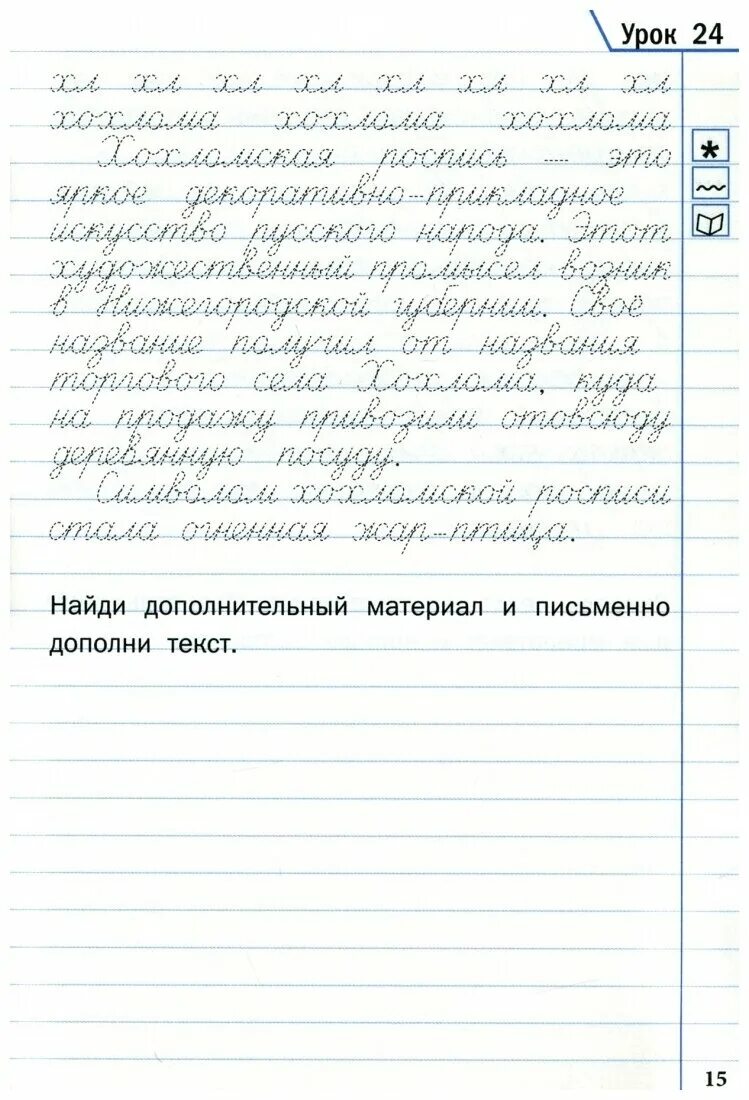 Урок 24
хл хл хл хл хл хл хл хл
хохлома хохлома хохлома
Хохломская роспись — это
яркое декоративно-прикладное
искусство русского народа. Этот
художественный промысел возник
в Нижегородской губернии. Своё
название получил от названия
торгового села Хохлома, куда
на продажу привозили отовсюду
деревянную посуду.
Символом хохломской росписи
стала огненная жар-птица.
Найди дополнительный материал и письменно
дополни текст.
15